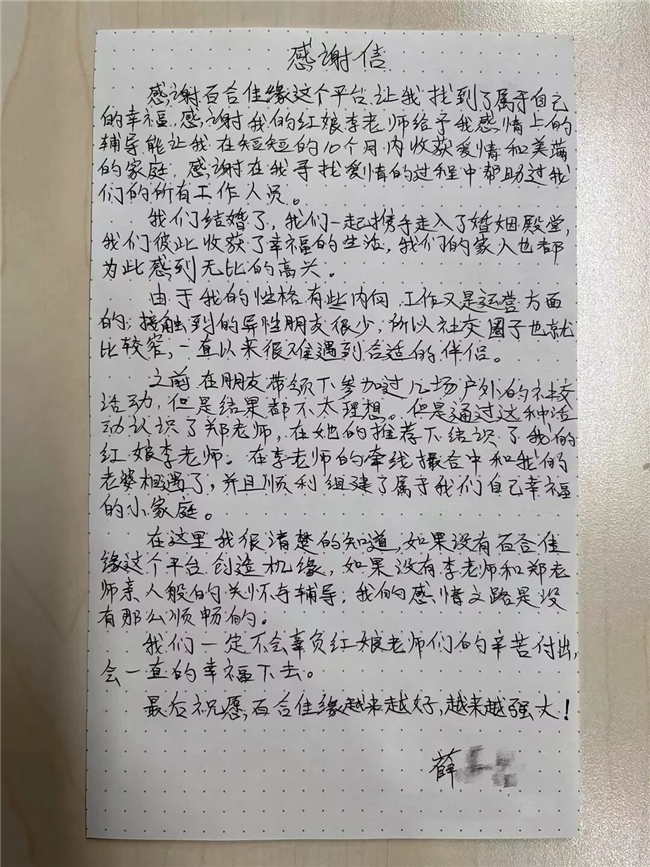 感谢信
感谢百合佳缘这个平台,让我找到了属于自己
的幸福。感谢我的红娘李老师给予我感情上的
辅导能让我在短短的10个月内收获爱情和美满
的家庭,感谢在我寻找爱情的过程中帮助过我
们的所有工作人员。
我们结婚了,我们一起携手走入了婚姻殿堂,
我们彼此收获了幸福的生活,我们的家人也都
为此感到无比的高兴。
由于我的性格有些内向,工作又是运营方面
的;接触到的异性朋友很少,所以社交圈子也就
比较窄,一直以来很难遇到合适的伴侣。
之前在朋友带领下参加过几场户外的社交
活动,但是结果都不太理想。但是通过这种活
动认识了郑老师,在她的推荐下结识了我的
红娘李老师。在李老师的牵线撮合中和我的
老婆相遇了,并且顺利组建了属于我们自己幸福
的小家庭。
在这里我很清楚的知道,如果没有百合佳
缘这个平台创造机缘,如果没有李老师和郑老
师亲人般的关怀与辅导,我的感情之路是没
有那么顺畅的。
我们一定不会辜负红娘老师们的辛苦付出,
会一直的幸福下去。
最后祝愿,百合佳缘越来越好,越来越强大!
薛